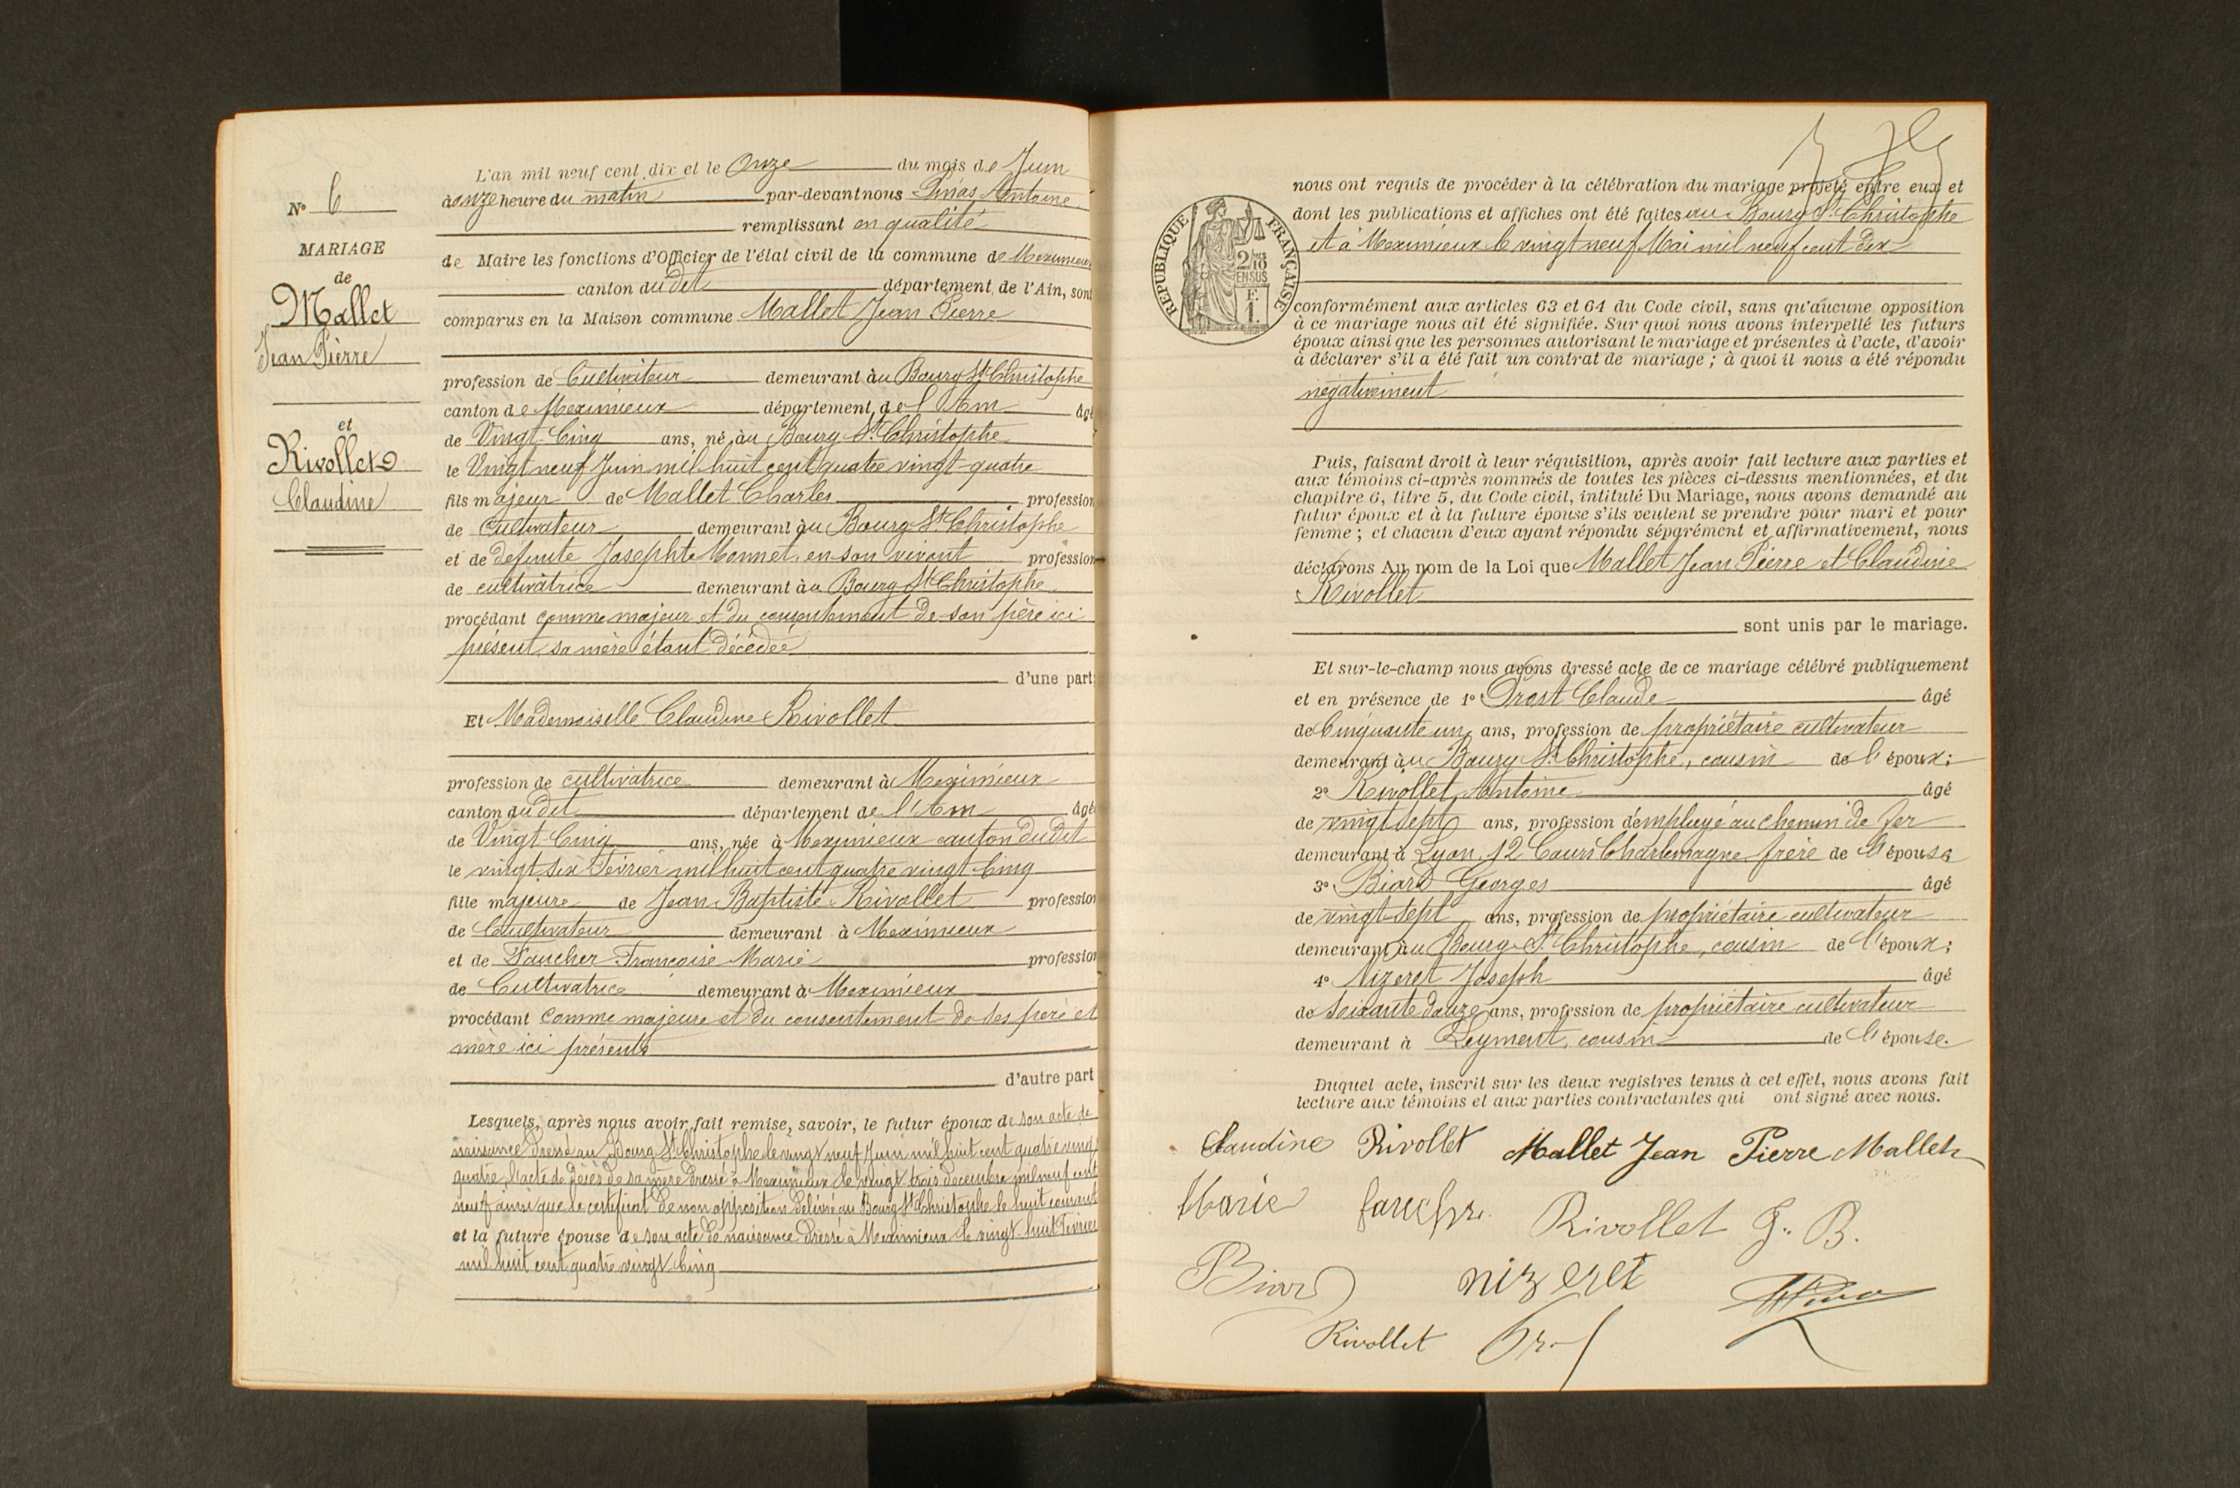 N° 6
MARIAGE
de
Mallet
Jean Pierre
et
Rivollet
Claudine
L'an mil neuf cent dix et le Onze du mois de Juin
à onze heure du matin par-devant nous Antoine
remplissant en qualité
de Maire les fonctions d'Officier de l'état civil de la commune de Meximieux
canton du dit département de l'Ain, sont
comparus en la Maison commune Mallet Jean Pierre
profession de Cultivateur demeurant àu Bourg St Christophe
canton de Meximieux département de l'Ain âgé
de Vingt-Cinq ans, né àu Bourg St Christophe
le Vingt neuf Juin mil huit cent quatre vingt-quatre
fils majeur de Mallet Charles profession
de cultivateur demeurant àu Bourg St Christophe
et de defunte Josephte Monnet, en son vivant profession
de cultivatrice demeurant àu Bourg St Christophe
procédant comme majeur et du consentement de son père ici
présent, sa mère étant décédée
d'une part;
Et Mademoiselle Claudine Rivollet
profession de cultivatrice demeurant à Meximieux
canton du dit département de l'Ain âgé
de Vingt-Cinq ans, née à Meximieux canton dudit
le vingt six Février mil huit cent quatre vingt cinq
fille majeure de Jean Baptiste Rivollet profession
de Cultivateur demeurant à Meximieux
et de Faucher Françoise Marie profession
de Cultivatrice demeurant à Meximieux
procédant comme majeure et du consentement de ses père et
mère ici présents
d'autre part
Lesquels, après nous avoir fait remise, savoir, le futur époux de son acte de
naissance dressé au Bourg St Christophe le vingt neuf Juin mil huit cent quatre vingt
quatre, l'acte de décès de sa mère dressé à Meximieux le vingt trois décembre mil neuf cent
neuf ainsi que le certificat de non opposition délivré au Bourg St Christophe le huit courant
et la future épouse de son acte de naissance dressé à Meximieux le vingt huit Février
mil huit cent quatre vingt Cinq
REPUBLIQUE FRANÇAISE
2/10 EN SUS
F. 1.
nous ont requis de procéder à la célébration du mariage projeté entre eux et
dont les publications et affiches ont été faites au Bourg St Christophe
et à Meximieux le vingt neuf Mai mil neuf cent dix
conformément aux articles 63 et 64 du Code civil, sans qu'aucune opposition
à ce mariage nous ait été signifiée. Sur quoi nous avons interpellé les futurs
époux ainsi que les personnes autorisant le mariage et présentes à l'acte, d'avoir
à déclarer s'il a été fait un contrat de mariage ; à quoi il nous a été répondu
négativement
Puis, faisant droit à leur réquisition, après avoir fait lecture aux parties et
aux témoins ci-après nommés de toutes les pièces ci-dessus mentionnées, et du
chapitre 6, titre 5, du Code civil, intitulé Du Mariage, nous avons demandé au
futur époux et à la future épouse s'ils veulent se prendre pour mari et pour
femme ; et chacun d'eux ayant répondu séparément et affirmativement, nous
déclarons Au nom de la Loi que Mallet Jean Pierre et Claudine
Rivollet
sont unis par le mariage.
Et sur-le-champ nous avons dressé acte de ce mariage célébré publiquement
et en présence de 1° Prost Claude âgé
de Cinquante un ans, profession de propriétaire cultivateur
demeurant àu Bourg St Christophe, cousin de l'époux;
2° Rivollet Antoine âgé
de vingt sept ans, profession d'employé au chemin de fer
demeurant à Lyon 12 Cours Charlemagne frère de l'épouse
3° Biard Georges âgé
de vingt-sept ans, profession de propriétaire cultivateur
demeurant àu Bourg St Christophe, cousin de l'époux;
4° Nizeret Joseph âgé
de soixante douze ans, profession de propriétaire cultivateur
demeurant à Leyment, cousin de l'épouse.
Duquel acte, inscrit sur les deux registres tenus à cet effet, nous avons fait
lecture aux témoins et aux parties contractantes qui ont signé avec nous.
Claudine Rivollet Mallet Jean Pierre Mallet
Marie Rivollet J. B.
Biard nizeret
Rivollet